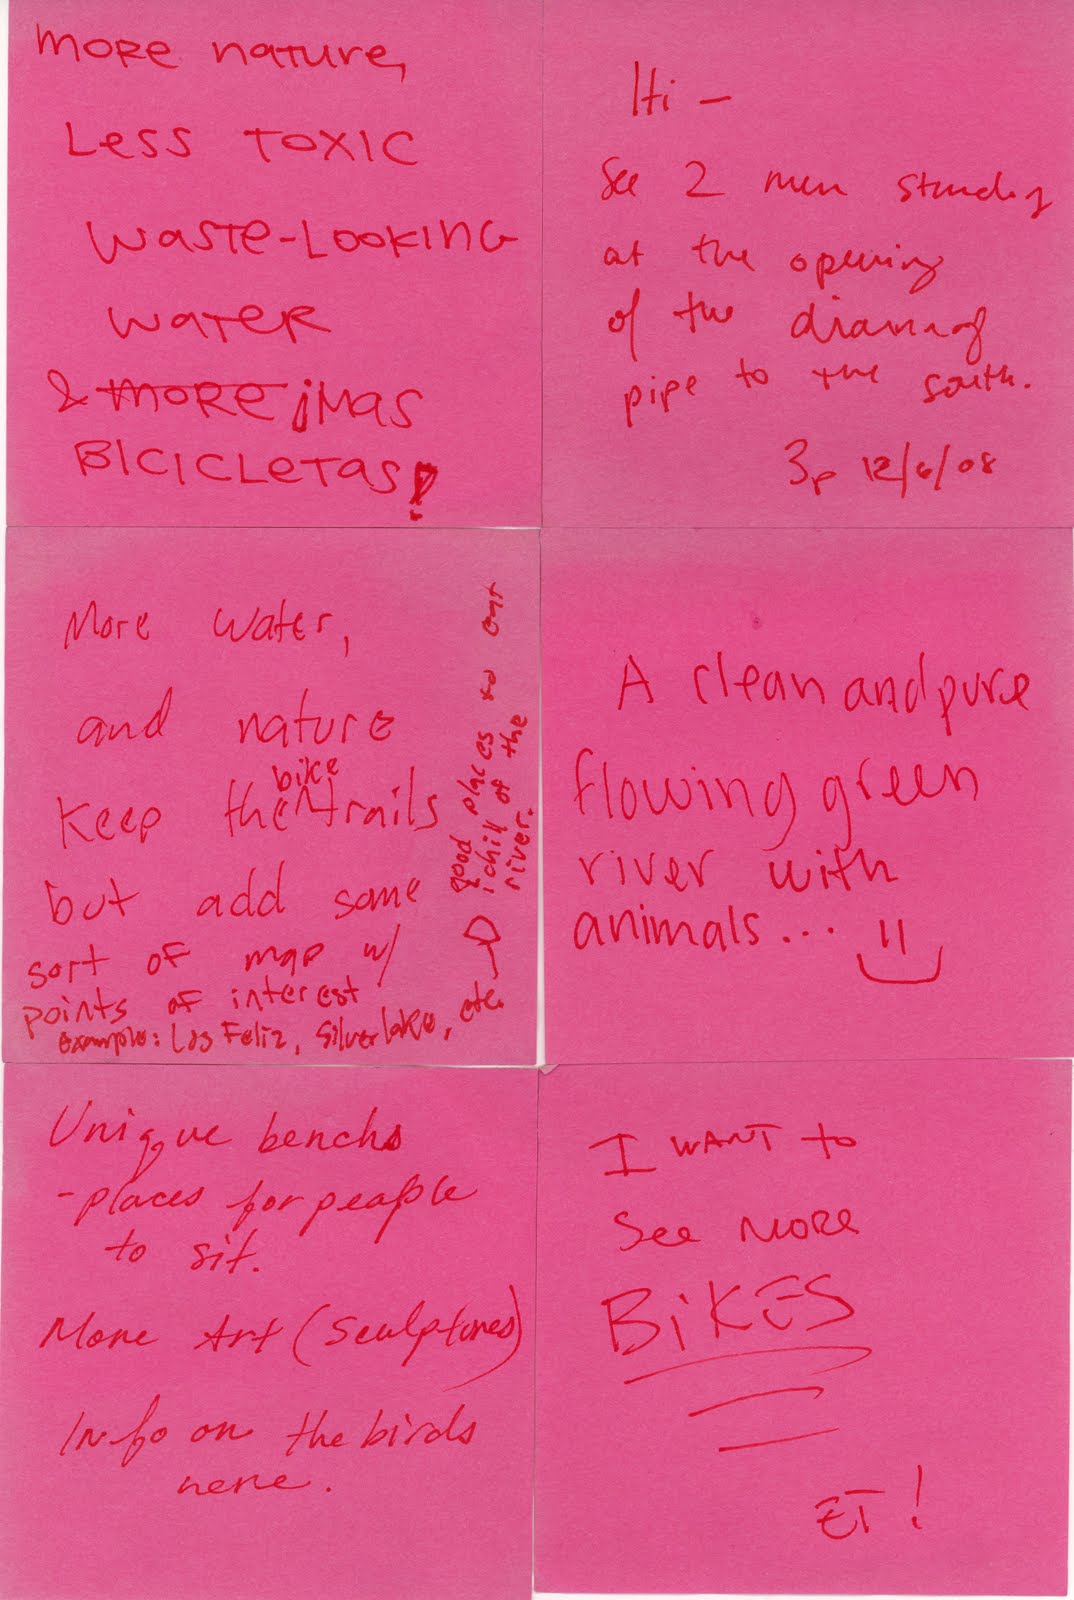 more nature,
Less TOXIC
WASTE-LOOKING
WATER
& more ¡MAS
BICICLETAS!
Hi -
See 2 men standing
at the opening
of the drainag
pipe to the south.
3p 12/6/08
More water,
and nature
keep the bike trails
but add some
sort of map w/
points of interest
example: Los Feliz, Silverlake, etc.
good places to eat
i chill of the
river.
A clean and pure
flowing green
river with
animals...
Unique benchs
- places for people
to sit.
More Art (Sculptures)
Info on the birds
here.
I WANT to
See MORE
BiKES
ET!